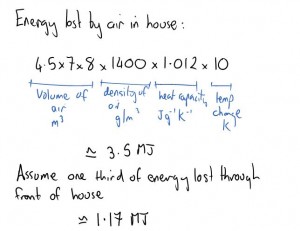 Energy lost by air in house:
4.5x7x8 x 1400 x 1.012 x 10
Volume of air m³
density of air g/m³
heat capacity Jg⁻¹K⁻¹
temp change K
≃ 3.5 MJ
Assume one third of energy lost through
front of house
≃ 1.17 MJ